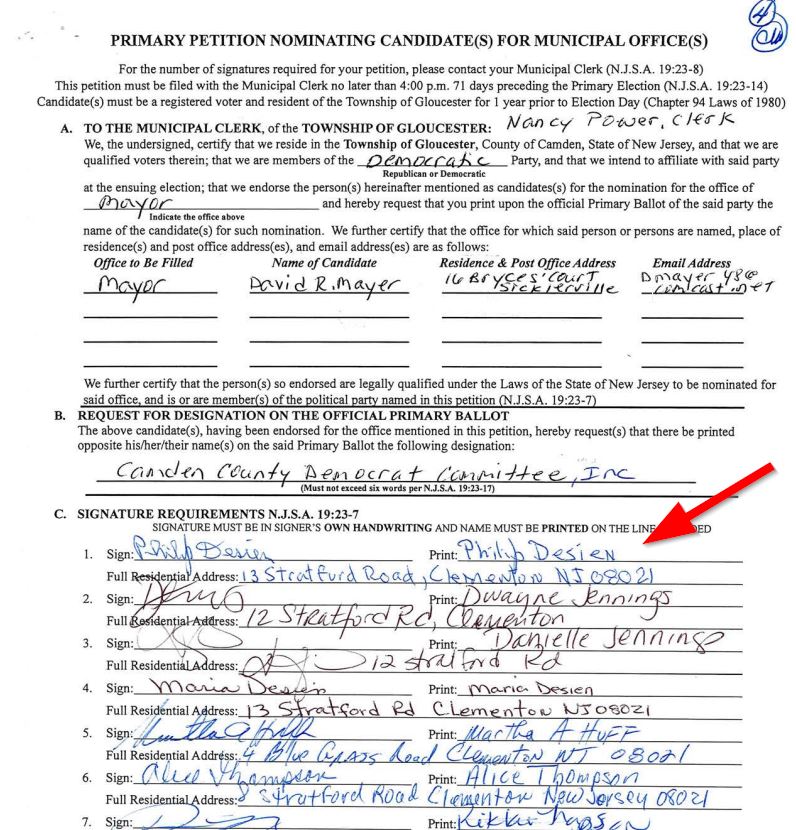 4
PRIMARY PETITION NOMINATING CANDIDATE(S) FOR MUNICIPAL OFFICE(S)
For the number of signatures required for your petition, please contact your Municipal Clerk (N.J.S.A. 19:23-8)
This petition must be filed with the Municipal Clerk no later than 4:00 p.m. 71 days preceding the Primary Election (N.J.S.A. 19:23-14)
Candidate(s) must be a registered voter and resident of the Township of Gloucester for 1 year prior to Election Day (Chapter 94 Laws of 1980)
A. TO THE MUNICIPAL CLERK, of the TOWNSHIP OF GLOUCESTER: Nancy Power, Clerk
We, the undersigned, certify that we reside in the Township of Gloucester, County of Camden, State of New Jersey, and that we are
qualified voters therein; that we are members of the Democratic Party, and that we intend to affiliate with said party
Republican or Democratic
at the ensuing election; that we endorse the person(s) hereinafter mentioned as candidates(s) for the nomination for the office of
Mayor and hereby request that you print upon the official Primary Ballot of the said party the
Indicate the office above
name of the candidate(s) for such nomination. We further certify that the office for which said person or persons are named, place of
residence(s) and post office address(es), and email address(es) are as follows:
Office to Be Filled Name of Candidate Residence & Post Office Address Email Address
Mayor David R. Mayer 16 Bryces' Court Sicklerville Dmayer 48@ comcast.net
We further certify that the person(s) so endorsed are legally qualified under the Laws of the State of New Jersey to be nominated for
said office, and is or are member(s) of the political party named in this petition (N.J.S.A. 19:23-7)
B. REQUEST FOR DESIGNATION ON THE OFFICIAL PRIMARY BALLOT
The above candidate(s), having been endorsed for the office mentioned in this petition, hereby request(s) that there be printed
opposite his/her/their name(s) on the said Primary Ballot the following designation:
Camden County Democrat Committee, Inc
(Must not exceed six words per N.J.S.A. 19:23-17)
C. SIGNATURE REQUIREMENTS N.J.S.A. 19:23-7
SIGNATURE MUST BE IN SIGNER'S OWN HANDWRITING AND NAME MUST BE PRINTED ON THE LINE
1. Sign: Philip Desien Print: Philip Desien
Full Residential Address: 13 Stratford Road, Clementon NJ 08021
2. Sign: Print: Dwayne Jennings
Full Residential Address: 12 Stratford Rd, Clementon
3. Sign: Print: Danielle Jennings
Full Residential Address: 12 Stratford Rd
4. Sign: Maria Desien Print: Maria Desien
Full Residential Address: 13 Stratford Rd Clementon NJ 08021
5. Sign: Martha A Huff Print: Martha A Huff
Full Residential Address: 4 Blue Grass Road Clementon NJ 08021
6. Sign: Alice Thompson Print: Alice Thompson
Full Residential Address: 8 Stratford Road Clementon New Jersey 08021
7. Sign: Print: